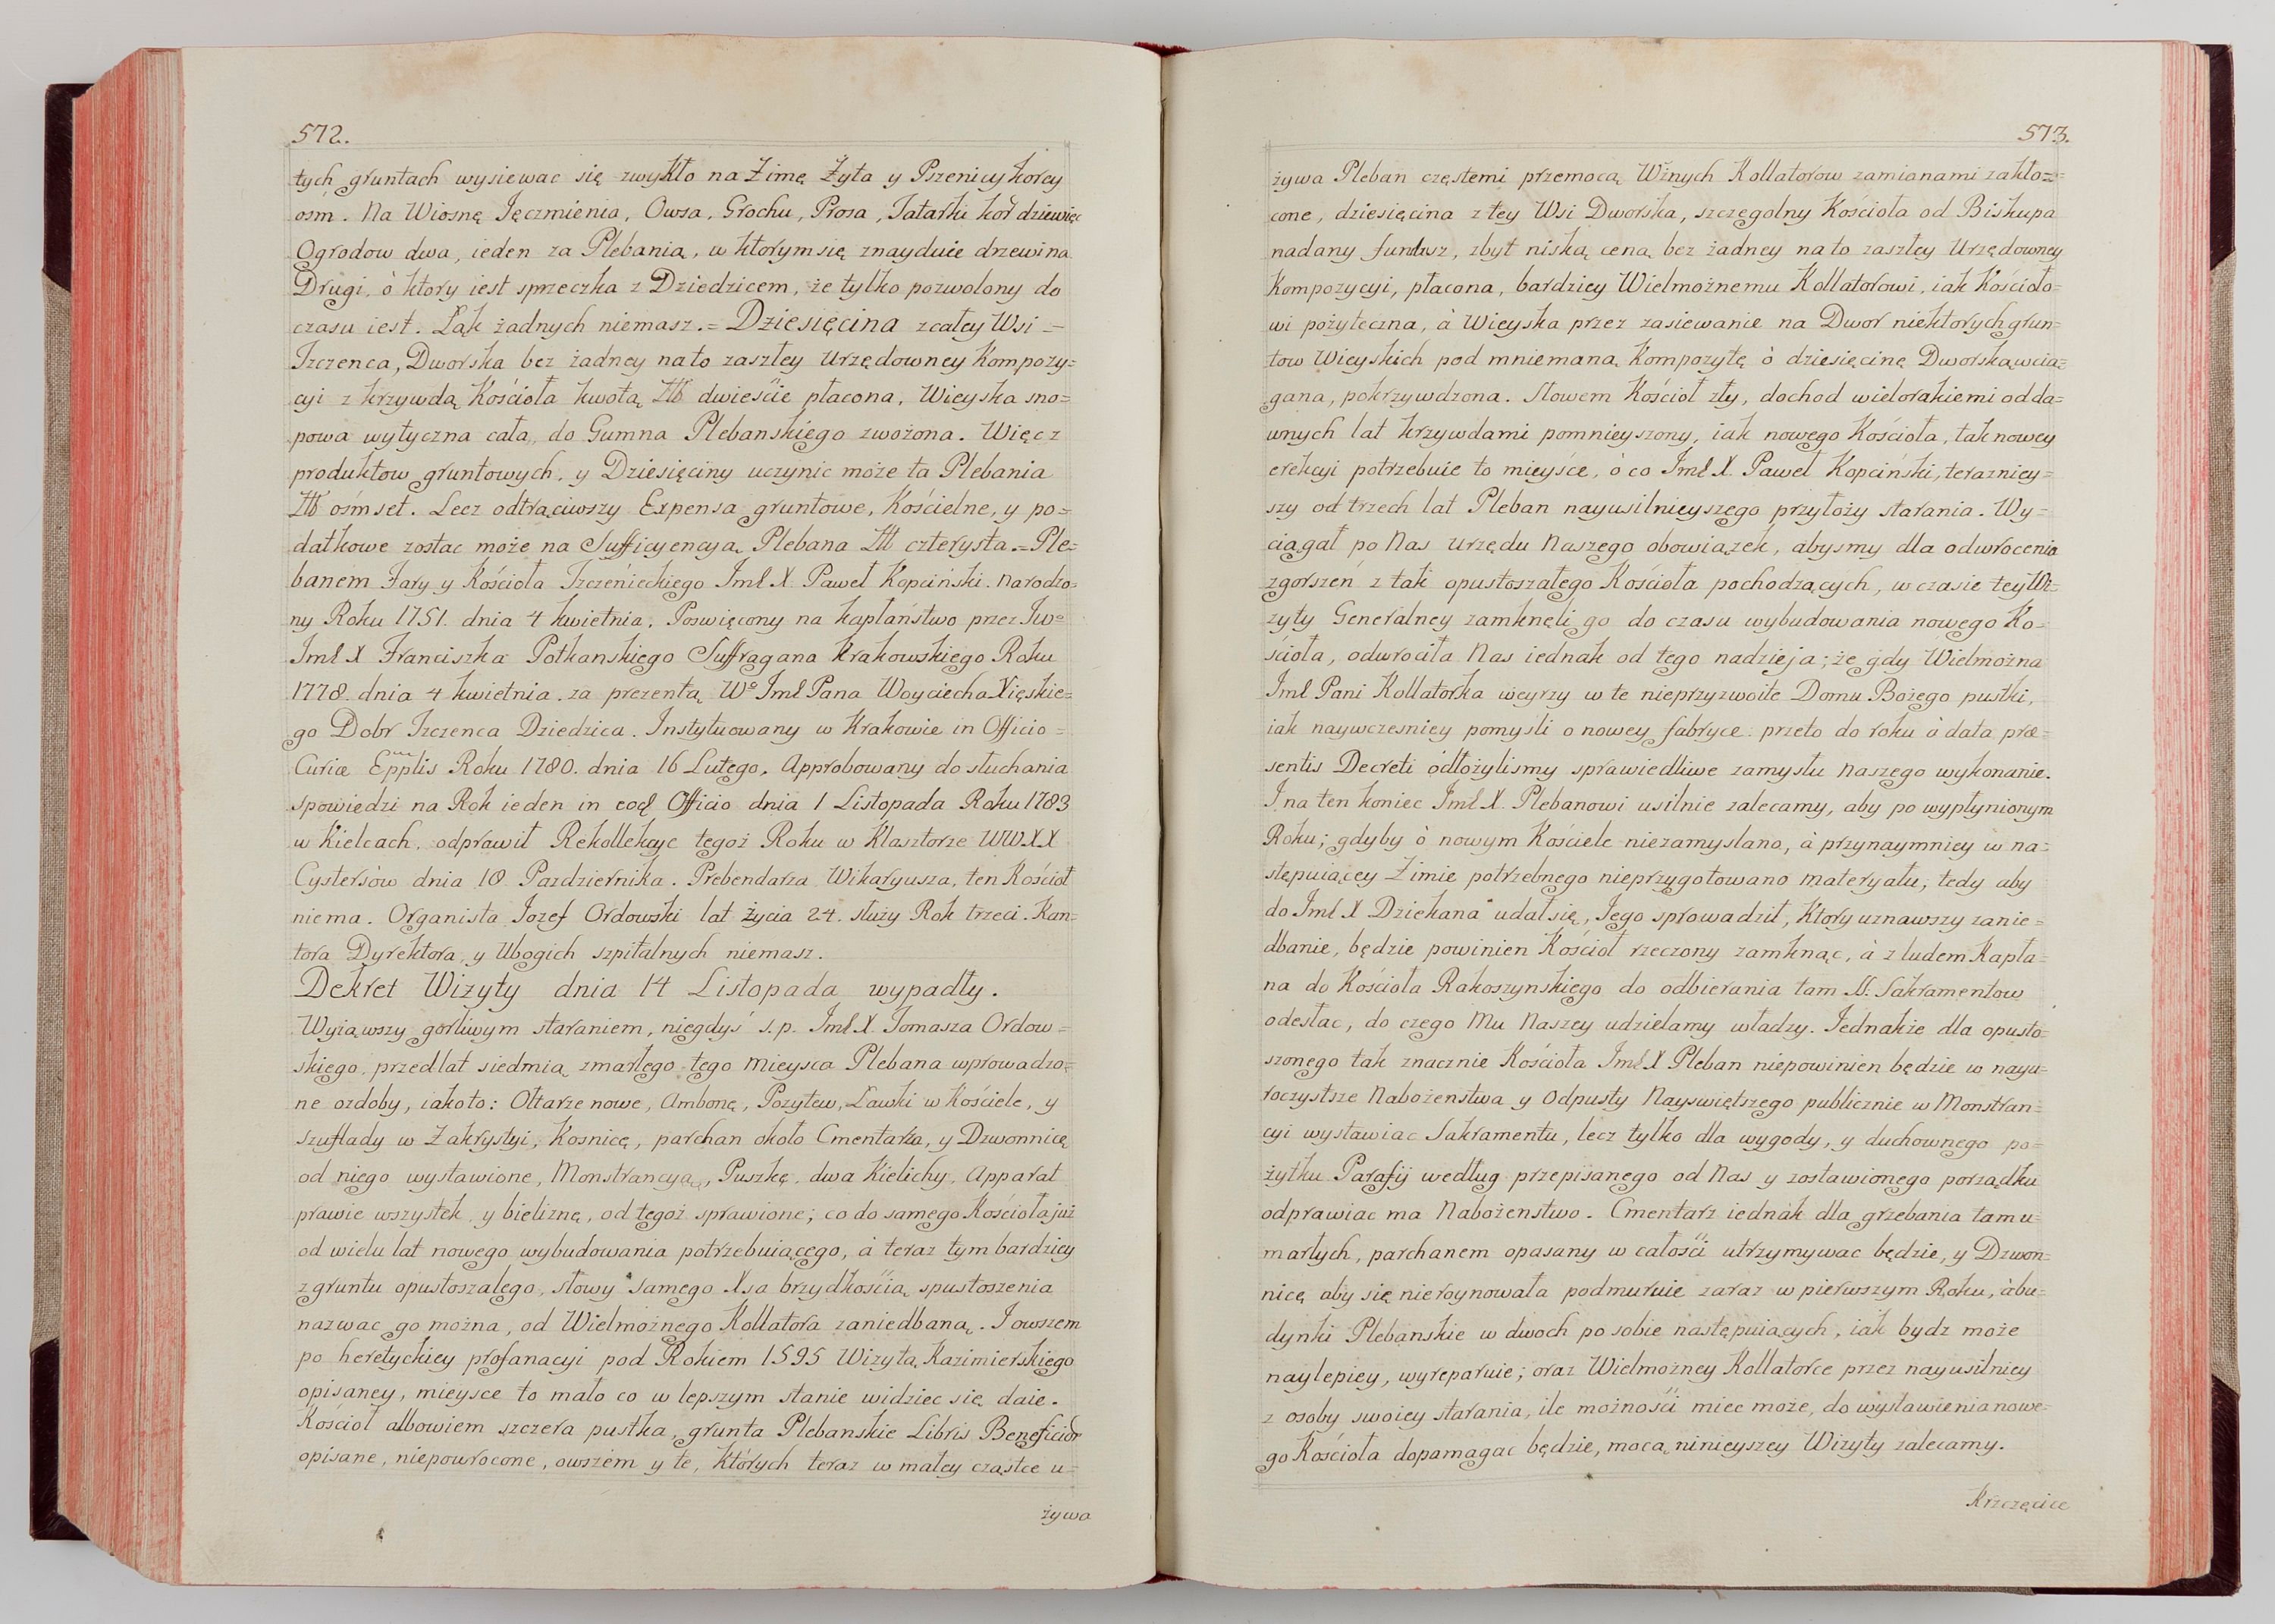 572.
tych gruntach wysiewac się zwykło na Zimę Żyta y Pszenicy korcy
ośm. Na Wiosnę Jęczmienia, Owsa, Grochu, Prosa, Tatarki kor dziewięc
Ogrodow dwa, ieden za Plebanią, w ktorym się znayduie drzewina
Drugi, ò ktory iest sprzeczka z Dziedzicem, że tylko pozwolony do
czasu iest. Łąk żadnych niemasz.= Dziesięcina zcałey Wsi =
Tczenca, Dworska bez żadney na to zaszłey Urzędowney Kompozy=
cyi z krzywdą Kościoła kwotą Złł dwieście płacona, Wieyska sno=
powa wytyczna cała, do Gumna Plebanskiego zwożona. Więc z
produktow gruntowych, y Dziesięciny uczynic może ta Plebania
Złł ośmset. Lecz odtrąciwszy Expensa gruntowe, Kościelne, y po=
datkowe zostac może na Sufficyencyą Plebana Złł czterysta.= Ple=
banem Fary y Kościoła Tczenieckiego Jmł X. Paweł Kopciński. Narodzo=
ny Roku 1751. dnia 4 kwietnia. Poswięcony na kapłaństwo przez Jwº
Jmł X Franciszka Potkanskiego Suffragana Krakowskiego Roku
1778. dnia 4 kwietnia. za prezentą Wº Jmł Pana Woyciecha Xięskie=
go Dobr Tczenca Dziedzica. Instytuowany w Krakowie in Officio =
Curiæ Epplis Roku 1780. dnia 16 Lutego. Approbowany do słuchania
spowiedzi na Rok ieden in eod Officio dnia 1 Listopada Roku 1783
w Kielcach, odprawił Rekollekcyc tegoż Roku w Klasztorze WWXX
Cystersòw dnia 18 Pazdziernika. Prebendarza Wikaryusza, ten Kościoł
niema. Organista Jozef Ordowski lat życia 24. służy Rok trzeci. Kan=
tora Dyrektora, y Ubogich szpitalnych niemasz.
Dekret Wizyty dnia 14 Listopada wypadły.
Wyiąwszy gorliwym staraniem, niegdyś s.p. Jmł X. Tomasza Ordow=
skiego, przed lat siedmią zmarłego, tego Mieysca Plebana wprowadzo=
ne ozdoby, iakoto: Ołtarze nowe, Ambonę, Pozytew, Ławki w Kościele, y
szuflady w Zakrystyi, Kosnicę, parchan około Cmentarza, y Dzwonnicę
od niego wystawione, Monstrancyą, Puszkę, dwa Kielichy, Apparat
prawie wszystek, y bieliznę, od tegoż sprawione; co do samego Kościoła już
od wielu lat nowego wybudowania potrzebuiącego, à teraz tym bardziey
z gruntu opustoszałego, słowy samego Xsa brzydkością spustoszenia
nazwac go można, od Wielmożnego Kollatora zaniedbaną. I owszem
po heretyckiey profanacyi pod Rokiem 1595 Wizytą Kazimierskiego
opisaney, mieysce to mało co w lepszym stanie widziec się daie.
Kościoł albowiem szczera pustka, grunta Plebanskie Libris Beneficior
opisane, niepowrocone, owszem y te, których teraz w małey cząstce u=
żywa
573.
żywa Pleban częstemi przemocą Wżnych Kollatorow zamianami zakłoz=
cone, dziesięcina z tey Wsi Dworska, szczegolny Kościoła od Biskupa
nadany fundusz, zbyt niską ceną bez żadney na to zaszłey Urzędowney
Kompozycyi, płacona, bardziey Wielmożnemu Kollatorowi, iak Kościoło=
wi pożyteczna, à Wieyska przez zasiewanie na Dwor niektorych grun=
tow Wieyskich pod mniemaną Kompozytę ò dziesięcinę Dworską wcia=
gana, pokrzywdzona. Słowem Kościoł zły, dochod wielorakiemi od da=
wnych lat krzywdami pomnieyszony, iak nowego Kościoła, tak nowey
erekcyi potrzebuie to mieyśce, ò co Jmł X. Paweł Kopciński, terazniey=
szy od trzech lat Pleban nayusilnieyszego przyłoży starania. Wy=
ciągał po Nas Urzędu Naszego obowiązek, abysmy dla odwrocenia
zgorszeń z tak opustoszałego Kościoła pochodzących, w czasie tey Wi=
zyty Generalney zamknęli go do czasu wybudowania nowego Ko=
ścioła, odwrociła Nas iednak od tego nadzieja; że gdy Wielmożna
Jmł Pani Kollatorka weyrzy w te nieprzyzwoite Domu Bożego pustki,
iak naywczesniey pomysli o nowey fabryce: przeto do roku à data præ=
sentis Decreti odłożylismy sprawiedliwe zamysłu Naszego wykonanie.
I na ten koniec Jmł X. Plebanowi usilnie zalecamy, aby po wypłynionym
Roku; gdyby ò nowym Kościele niezamyslano, à przynaymniey w na=
stępuiącey Zimie potrzebnego nieprzygotowano materyału, tedy aby
do Jmł X Dziekana udał się, Jego sprowadził, Ktory uznawszy zanie=
dbanie, będzie powinien Kościoł rzeczony zamknąc, à z ludem Kapła=
na do Kościoła Rakoszynskiego do odbierania tam SS. Sakramentow
odesłac, do czego Mu Naszey udzielamy władzy. Jednakże dla opusto=
szonego tak znacznie Kościoła Jmł X Pleban niepowinien będzie w nayu=
roczystsze Nabożenstwa y Odpusty Nayswiętszego publicznie w Monstran=
cyi wystawiac Sakramentu, lecz tylko dla wygody, y duchownego po=
żytku Parafij według przepisanego od Nas y zostawionego porządku
odprawiac ma Nabożenstwo. Cmentarz iednak dla grzebania tam u=
marłych, parchanem opasany w całości utrzymywac będzie, y Dzwon=
nicę aby się nieroynowała podmuruie zaraz w pierwszym Roku, à bu=
dynki Plebanskie w dwoch po sobie następuiących, iak bydz może
naylepiey, wyreparuie; oraz Wielmożney Kollatorce przez nayusilniey
z osoby swoiey starania, ile możności miec może, do wystawienia nowe=
go Kościoła dopamagac będzie, mocą ninieyszey Wizyty zalecamy.
Krzczęcice